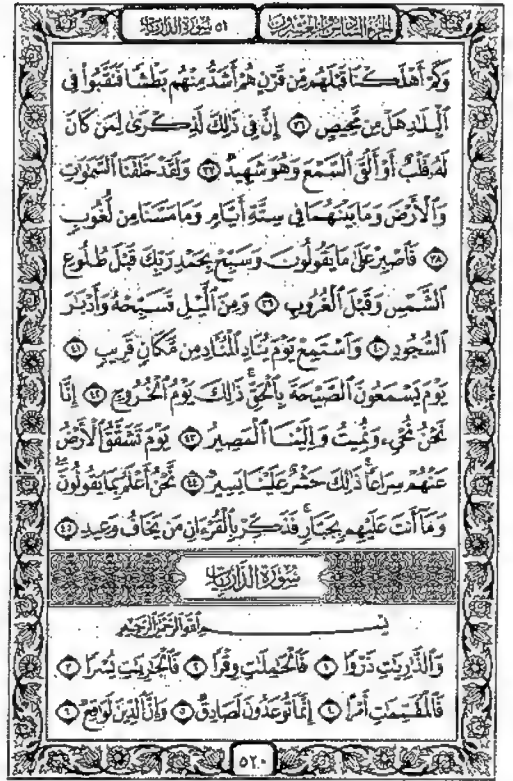 الجزء السادس والعشرون ٥١ سورة الذاريات
وَكَمْ أَهْلَكْنَا قَبْلَهُم مِّن قَرْنٍ هُمْ أَشَدُّ مِنْهُم بَطْشًا فَنَقَّبُوا۟ فِى
ٱلْبِلَٰدِ هَلْ مِن مَّحِيصٍ ٣٦ إِنَّ فِى ذَٰلِكَ لَذِكْرَىٰ لِمَن كَانَ
لَهُۥ قَلْبٌ أَوْ أَلْقَى ٱلسَّمْعَ وَهُوَ شَهِيدٌ ٣٧ وَلَقَدْ خَلَقْنَا ٱلسَّمَٰوَٰتِ
وَٱلْأَرْضَ وَمَا بَيْنَهُمَا فِى سِتَّةِ أَيَّامٍ وَمَا مَسَّنَا مِن لُّغُوبٍ
٣٨ فَٱصْبِرْ عَلَىٰ مَا يَقُولُونَ وَسَبِّحْ بِحَمْدِ رَبِّكَ قَبْلَ طُلُوعِ
ٱلشَّمْسِ وَقَبْلَ ٱلْغُرُوبِ ٣٩ وَمِنَ ٱلَّيْلِ فَسَبِّحْهُ وَأَدْبَٰرَ
ٱلسُّجُودِ ٤٠ وَٱسْتَمِعْ يَوْمَ يُنَادِ ٱلْمُنَادِ مِن مَّكَانٍ قَرِيبٍ ٤١
يَوْمَ يَسْمَعُونَ ٱلصَّيْحَةَ بِٱلْحَقِّ ۚ ذَٰلِكَ يَوْمُ ٱلْخُرُوجِ ٤٢ إِنَّا
نَحْنُ نُحْىِۦ وَنُمِيتُ وَإِلَيْنَا ٱلْمَصِيرُ ٤٣ يَوْمَ تَشَقَّقُ ٱلْأَرْضُ
عَنْهُمْ سِرَاعًا ۚ ذَٰلِكَ حَشْرٌ عَلَيْنَا يَسِيرٌ ٤٤ نَّحْنُ أَعْلَمُ بِمَا يَقُولُونَ ۖ
وَمَآ أَنتَ عَلَيْهِم بِجَبَّارٍ ۖ فَذَكِّرْ بِٱلْقُرْءَانِ مَن يَخَافُ وَعِيدِ ٤٥
سورة الذاريات
بسم الله الرحمن الرحيم
وَٱلذَّٰرِيَٰتِ ذَرْوًا ١ فَٱلْحَٰمِلَٰتِ وِقْرًا ٢ فَٱلْجَٰرِيَٰتِ يُسْرًا ٣
فَٱلْمُقَسِّمَٰتِ أَمْرًا ٤ إِنَّمَا تُوعَدُونَ لَصَادِقٌ ٥ وَإِنَّ ٱلدِّينَ لَوَٰقِعٌ ٦
٥٢٠